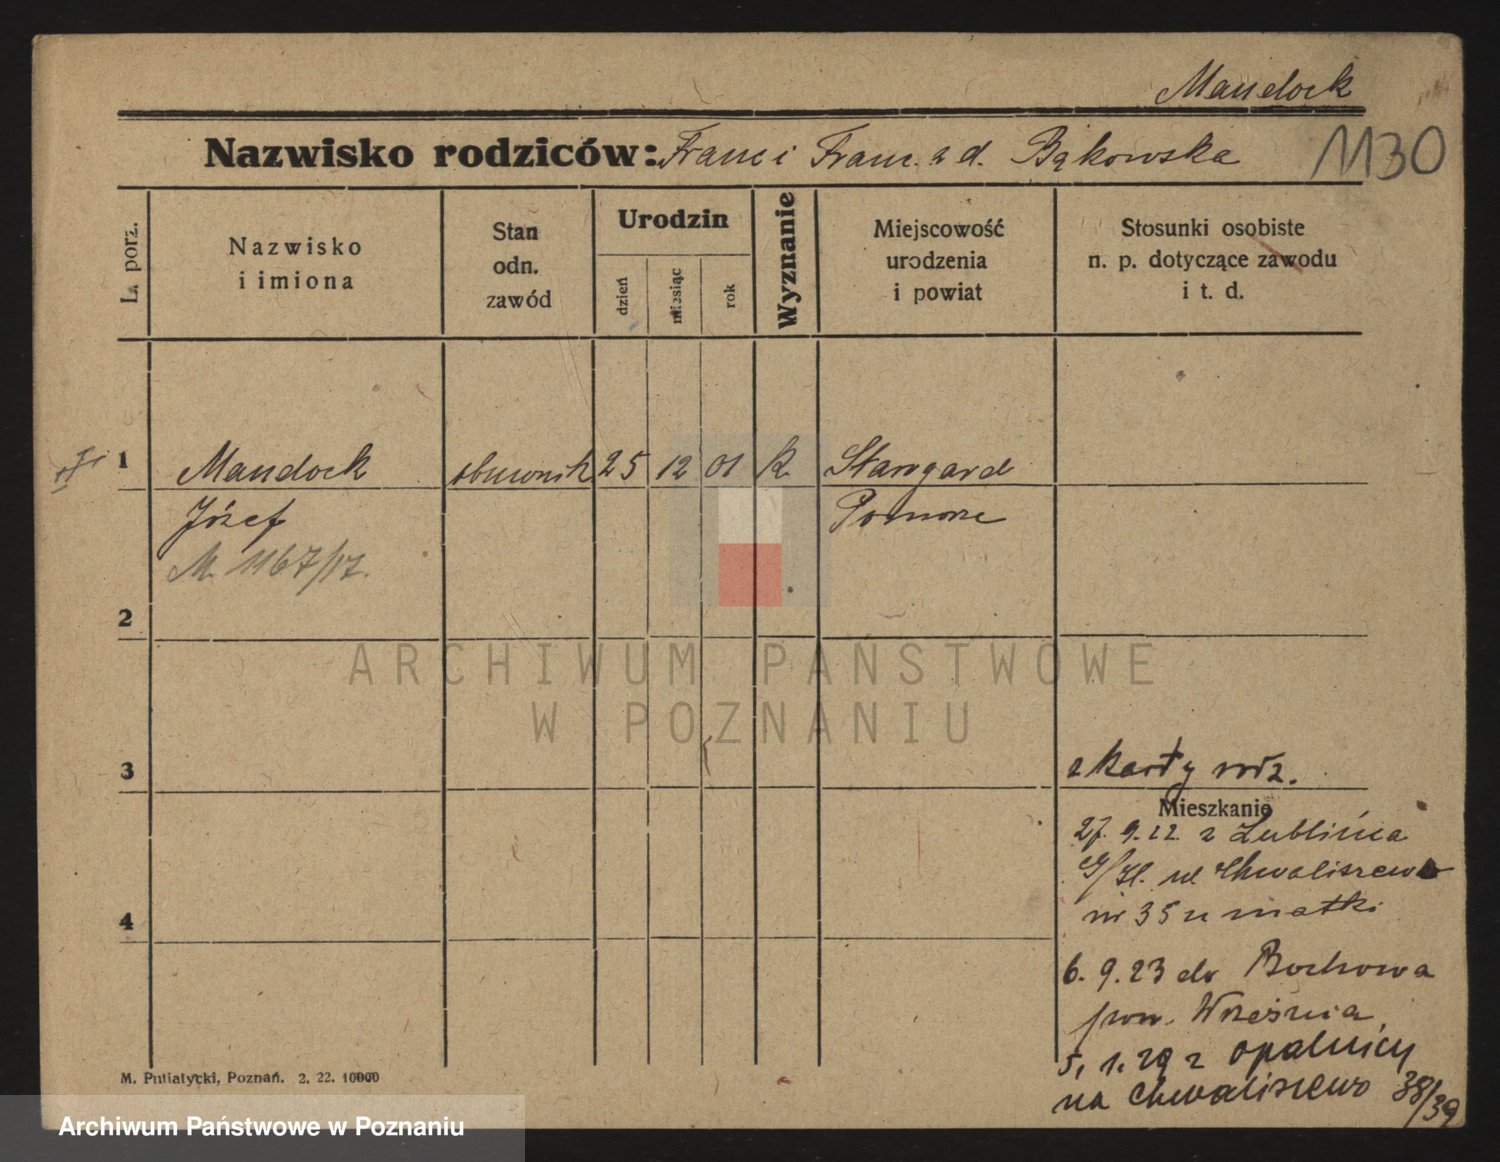 Mandock
Nazwisko rodziców: Franc i Franc. z d. Bąkowska
1130
L. porz.
Nazwisko
i imiona
Stan
odn.
zawód
Urodzin
dzień
miesiąc
rok
Wyznanie
Miejscowość
urodzenia
i powiat
Stosunki osobiste
n. p. dotyczące zawodu
i t. d.
1 Mandock obuwnik 25 12 01 k. Starogard
Józef Pomorze
M. 1167/17.
2
ARCHIWUM PAŃSTWOWE
W POZNANIU
3
z karty rodz.
Mieszkanie
27. 9. 22 z Lublińca
G/Śl. ul Chwaliszewo
nr 35 u matki
4
6. 9. 23 do
pow. Września
5. 1. 29 z Opalnicy
na Chwaliszewo 38/39
M. Putiatycki, Poznań. 2. 22. 10000
Archiwum Państwowe w Poznaniu